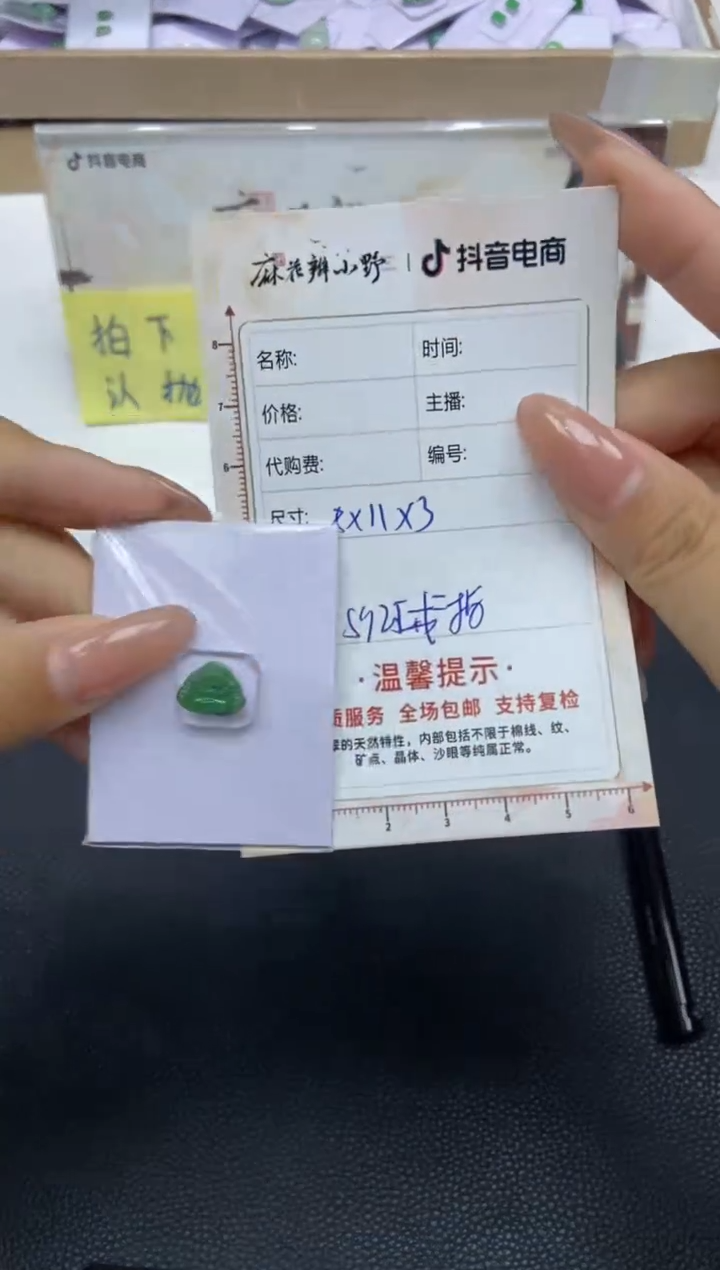 抖音电商
麻花辫小野 | 抖音电商
拍下
认抛
名称: 时间:
价格: 主播:
代购费: 编号:
尺寸: x11x3
戒指
·温馨提示·
质服务 全场包邮 支持复检
的天然特性，内部包括不限于棉线、纹、
矿点、晶体、沙眼等纯属正常。
8
7
6
2 3 4 5 6